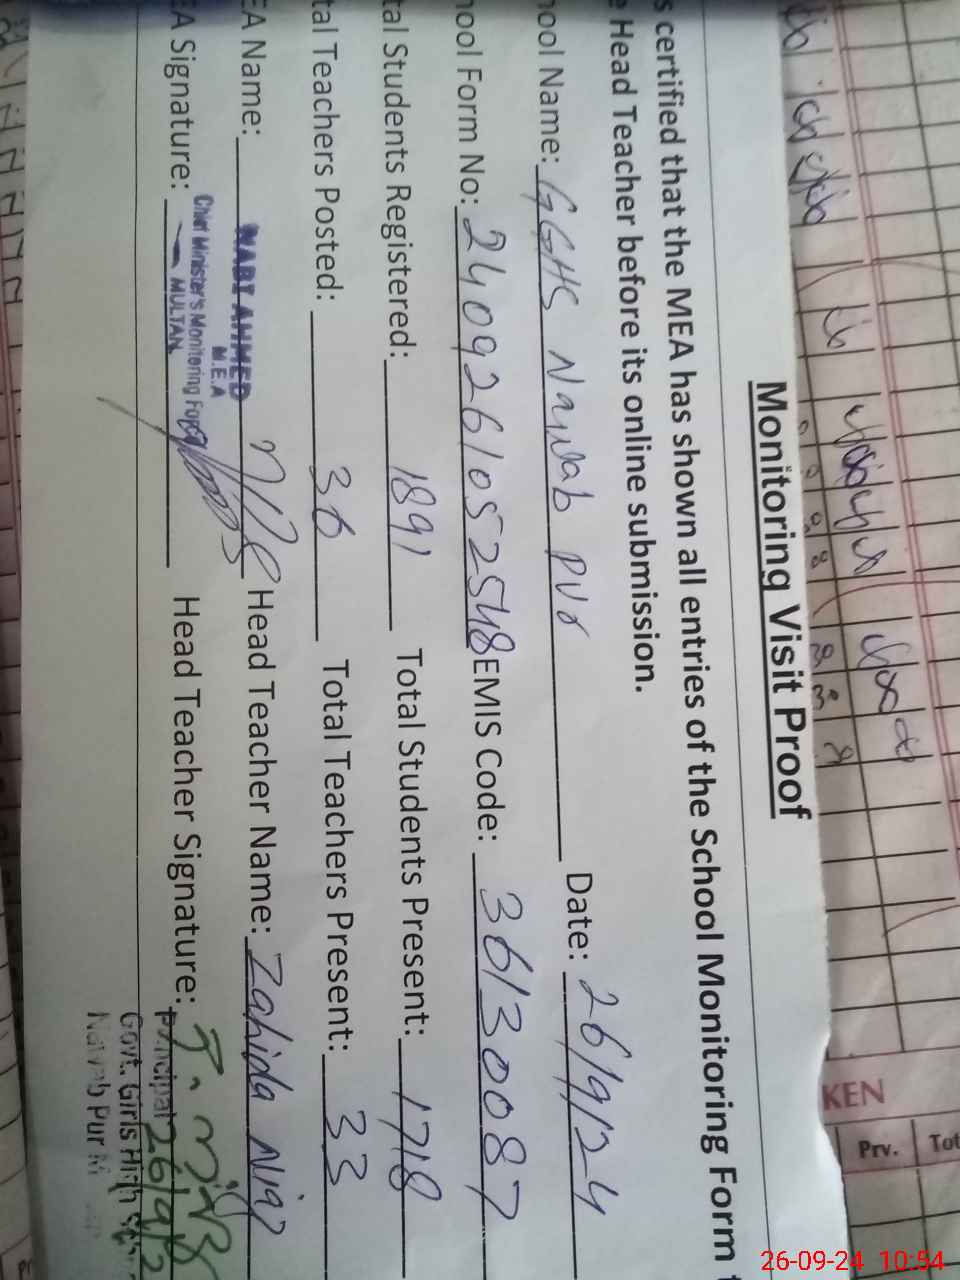 Monitoring Visit Proof
s certified that the MEA has shown all entries of the School Monitoring Form t
e Head Teacher before its online submission.
ool Name: GGHS Nawab Pur Date: 26/9/24
ool Form No: 2409261052548 EMIS Code: 36130087
tal Students Registered: 1891 Total Students Present: 1718
tal Teachers Posted: 36 Total Teachers Present: 33
EA Name: NABI AHMED Head Teacher Name: Zahida Niaz
M.E.A
Chief Minister's Monitoring Force
MULTAN
EA Signature: Head Teacher Signature:
Principal 26/9/2
Govt. Girls High
Nawab Pur
KEN
Prv. Tot
26-09-24 10:54